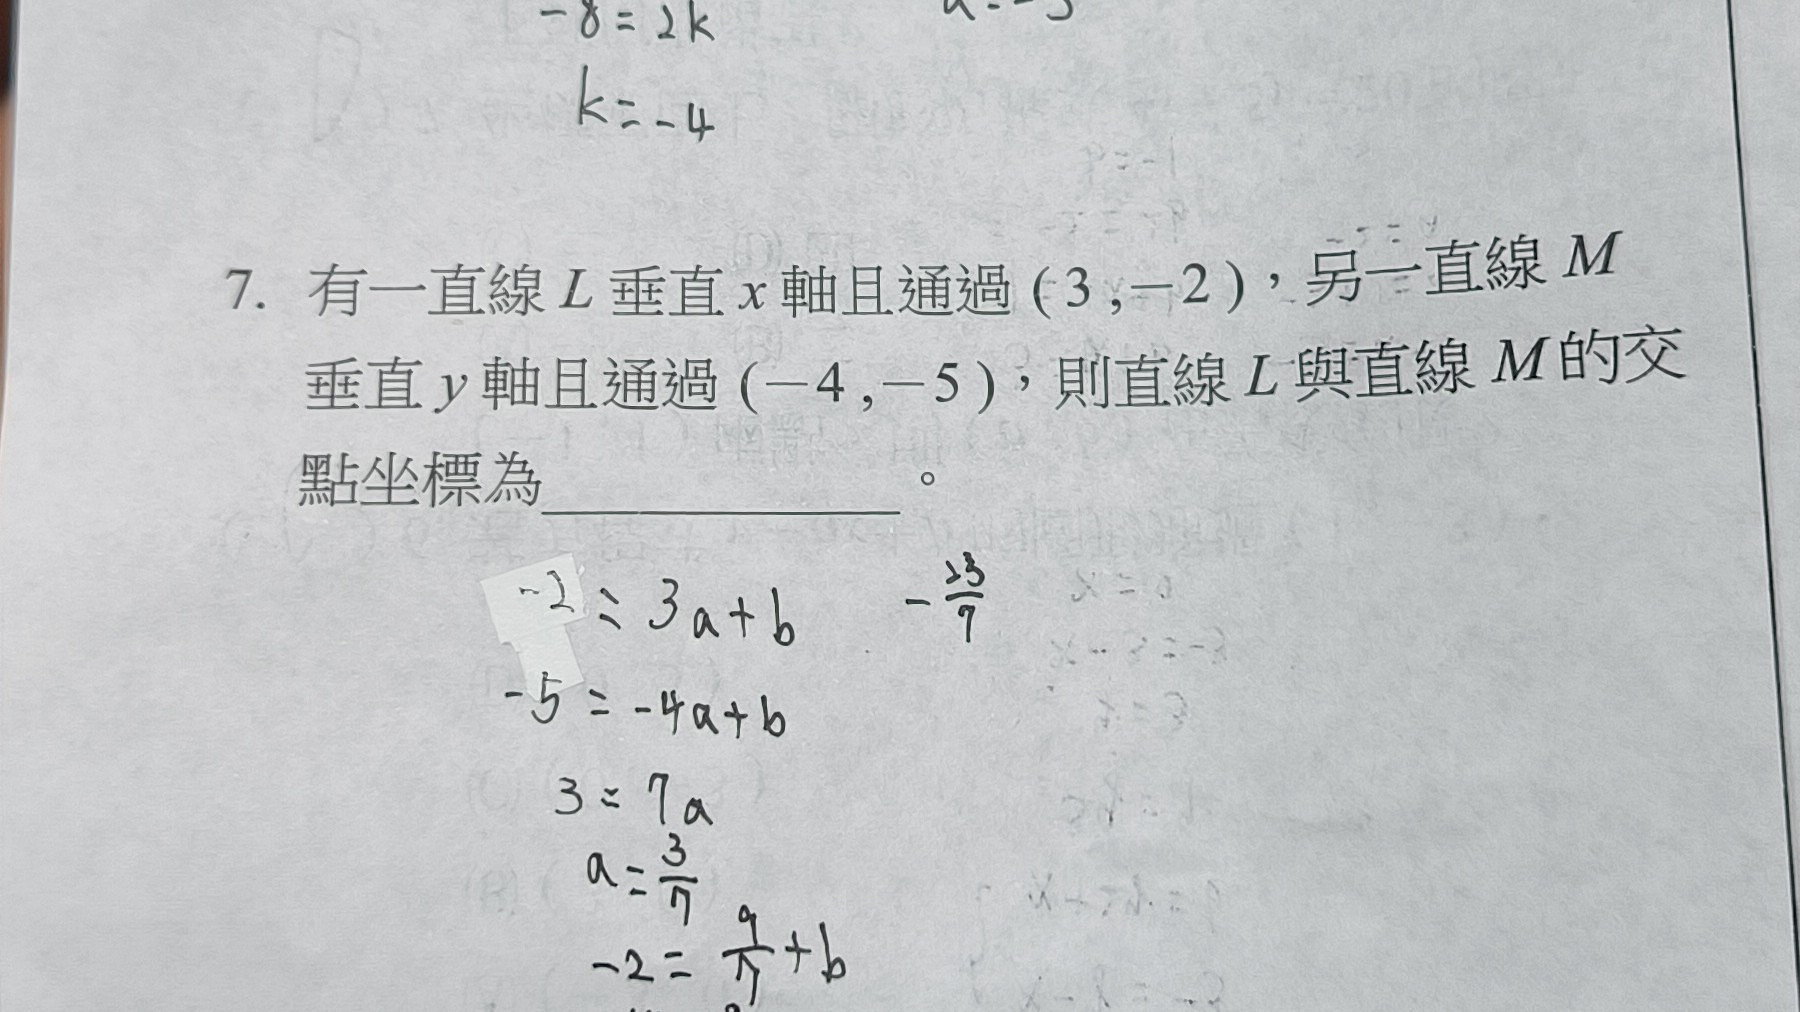 -8=2k
k=-4
7. 有一直線 L 垂直 x 軸且通過 ( 3 ,－2 )，另一直線 M
垂直 y 軸且通過 (－4 ,－5 )，則直線 L 與直線 M 的交
點坐標為＿＿＿＿＿＿。
-2 = 3a+b
-23/7
-5 = -4a+b
3 = 7a
a=3/7
-2= 9/7 +b